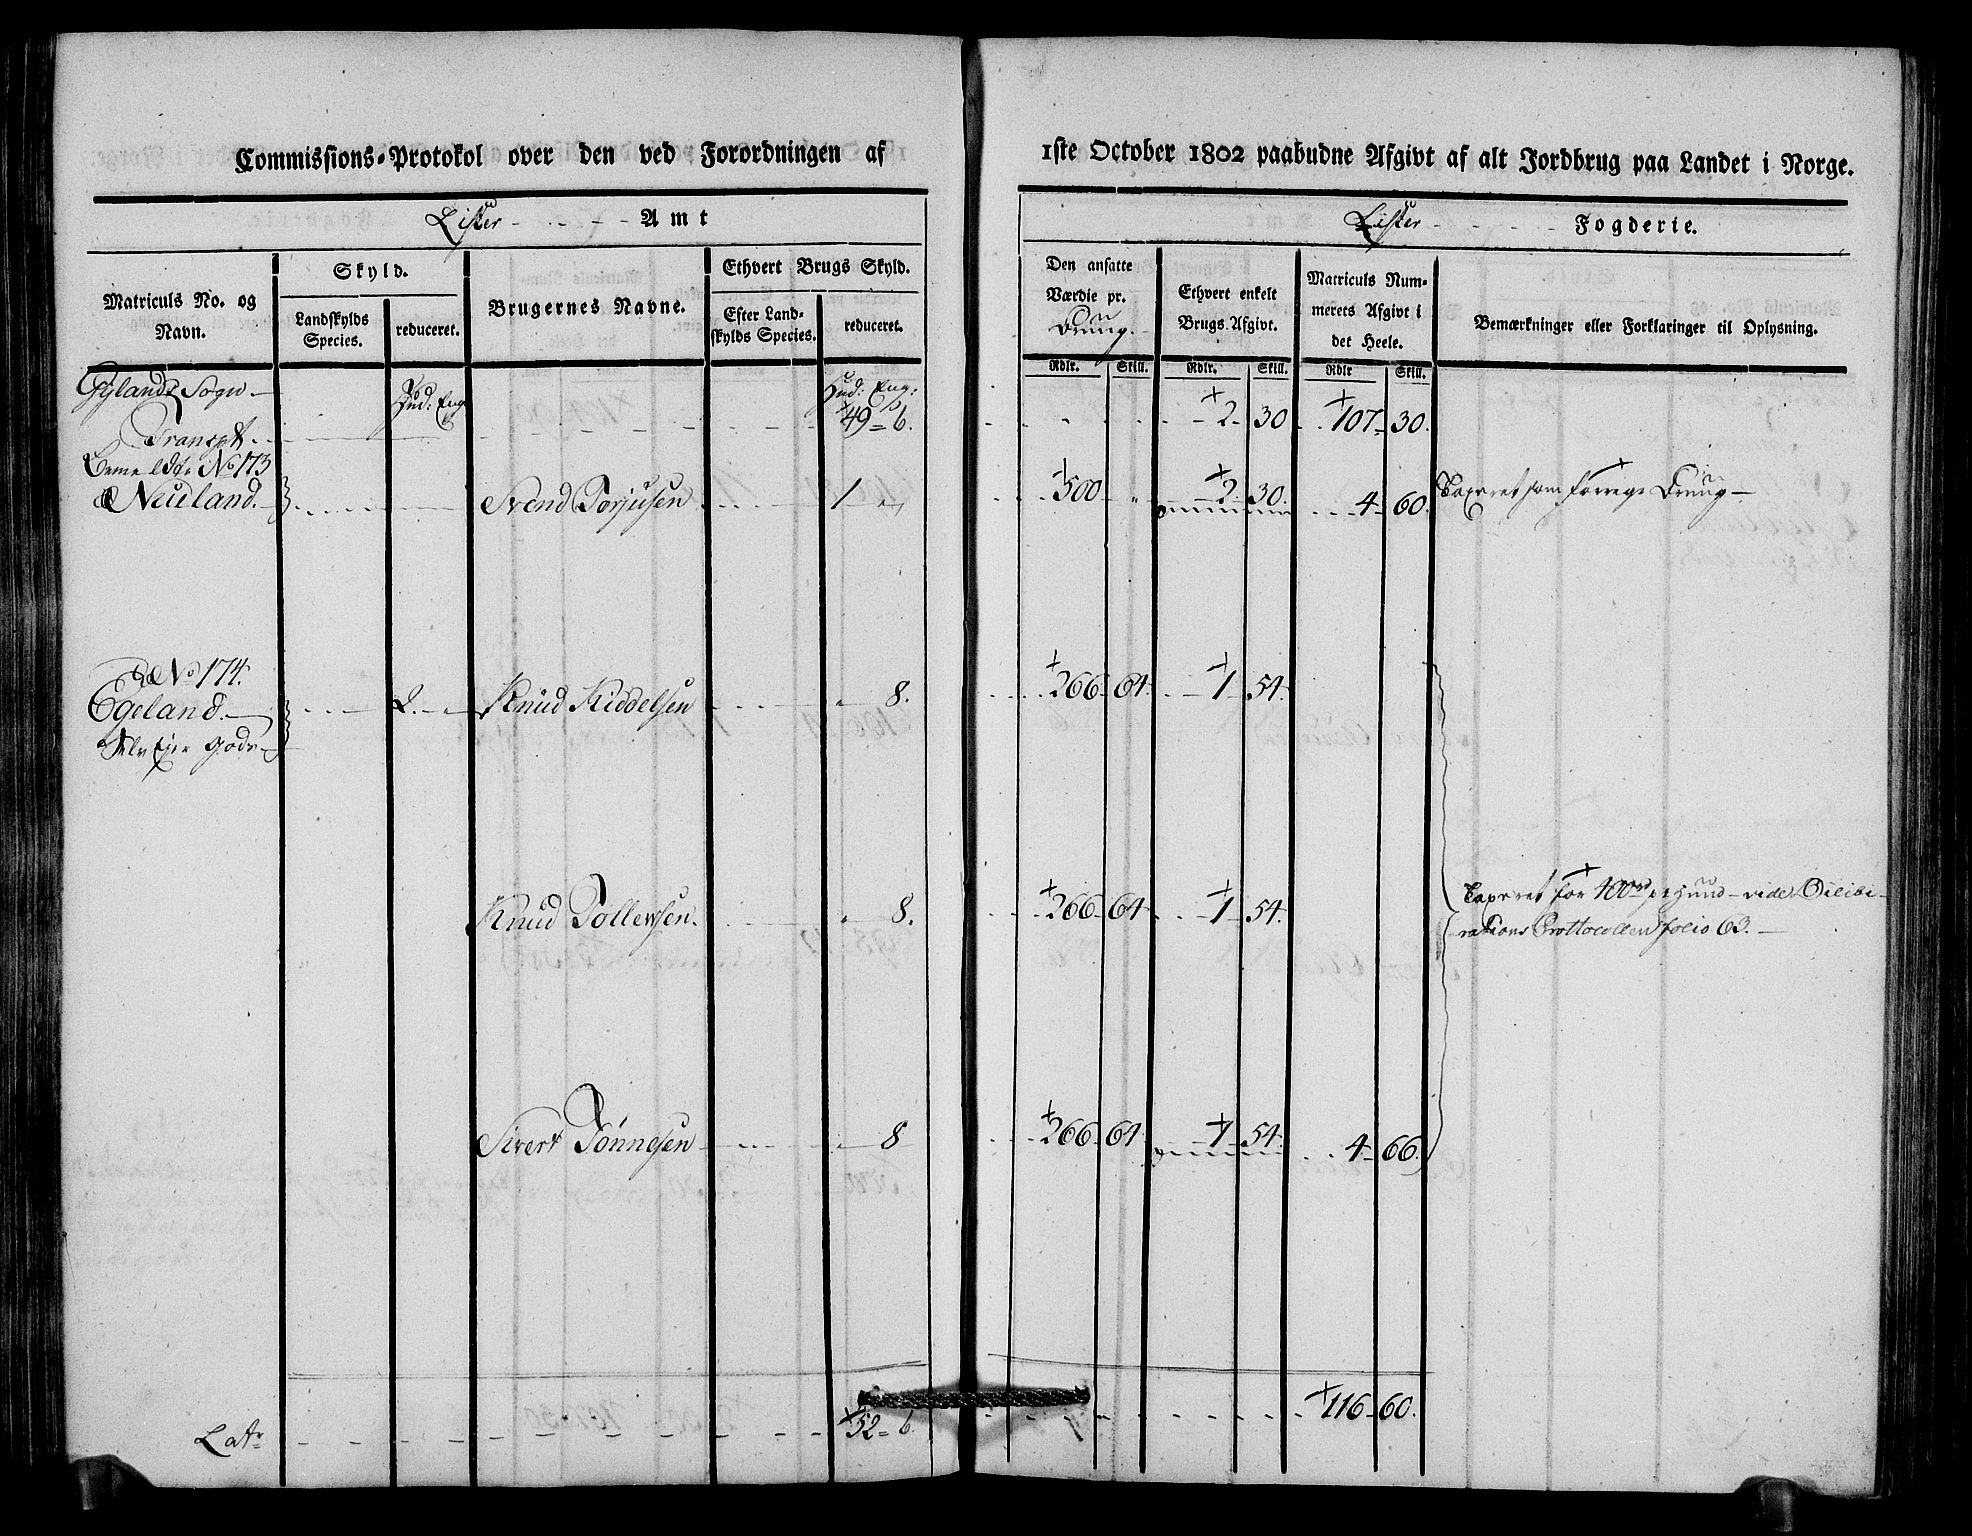 Commissions-Protokol over den ved Forordningen af
1ste October 1802 paabudne Afgivt af alt Jordbrug paa Landet i Norge.
Lister Amt
Lister Fogderie.
Matriculs No. og Navn.
Skyld.
Landskylds Species.
reduceret.
Brugernes Navne.
Ethvert Brugs Skyld.
Efter Landskylds Species.
reduceret.
Den ansatte Værdie pr. Bruug.
Ethvert enkelt Brugs Afgivt.
Matriculs Nummerets Afgivt i det Heele.
Bemærkninger eller Forklaringer til Oplysning.
Rdlr. Skill. Rdlr. Skill. Rdlr Skill.
Gylands Sogn Hud: Eng: Hud: Eng:
Transpt. 49 = 6. 2 30 107 30.
No 173
Neuland. Svend Torjusen 1 500 2 30. 4 60. Taxeret som forrege Bruug
No 174.
Egeland. 2. Knud Kiddelsen 8. 266 64 1 54
Selv Ejer Gods
Knud Tollevsen. 8. 266 64 1 54. Taxeret for 400rd pr Huud vide Delibe-
rations Prottocollen folio 63.
Sivert Tönnesen 8 266 64 1 54. 4 66.
Latr 52 = 6 116 60.